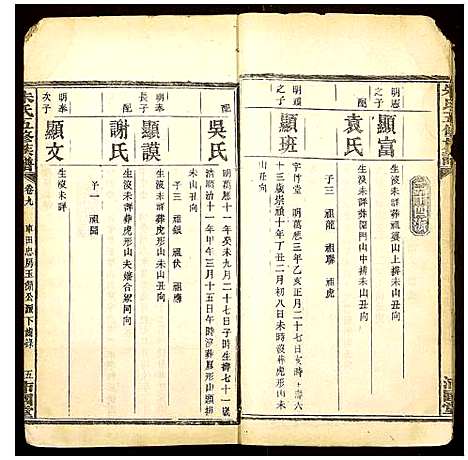 明應
之子
顯富
生沒未詳葬祖婆山上排未山丑向
袁氏
配
生沒未詳葬傑門山中排未山丑向
子三 祖龍 祖聯 祖虎
明頊
之子
顯班
字竹堂 明萬應三年乙亥正月二十七日亥時 壽六
十三歲崇禎十年丁丑二月初八日未時沒葬虎形山未
山丑向
配
吳氏
明萬應十一年癸未九月二十七日子時生壽七十一歲
清順治十一年甲午三月十五日午時沒葬虎形山未山
丑向
子三 祖銀 祖伏 祖應
明奉
長子
顯謨
生沒未詳葬虎形山未山丑向
配
謝氏
生沒未詳葬虎形山夫墳合祭同向
子一 祖聞
明奉
次子
顯文
生沒未詳
朱氏五修族譜
卷九
車田忠房玉湖公派下齒錄
五